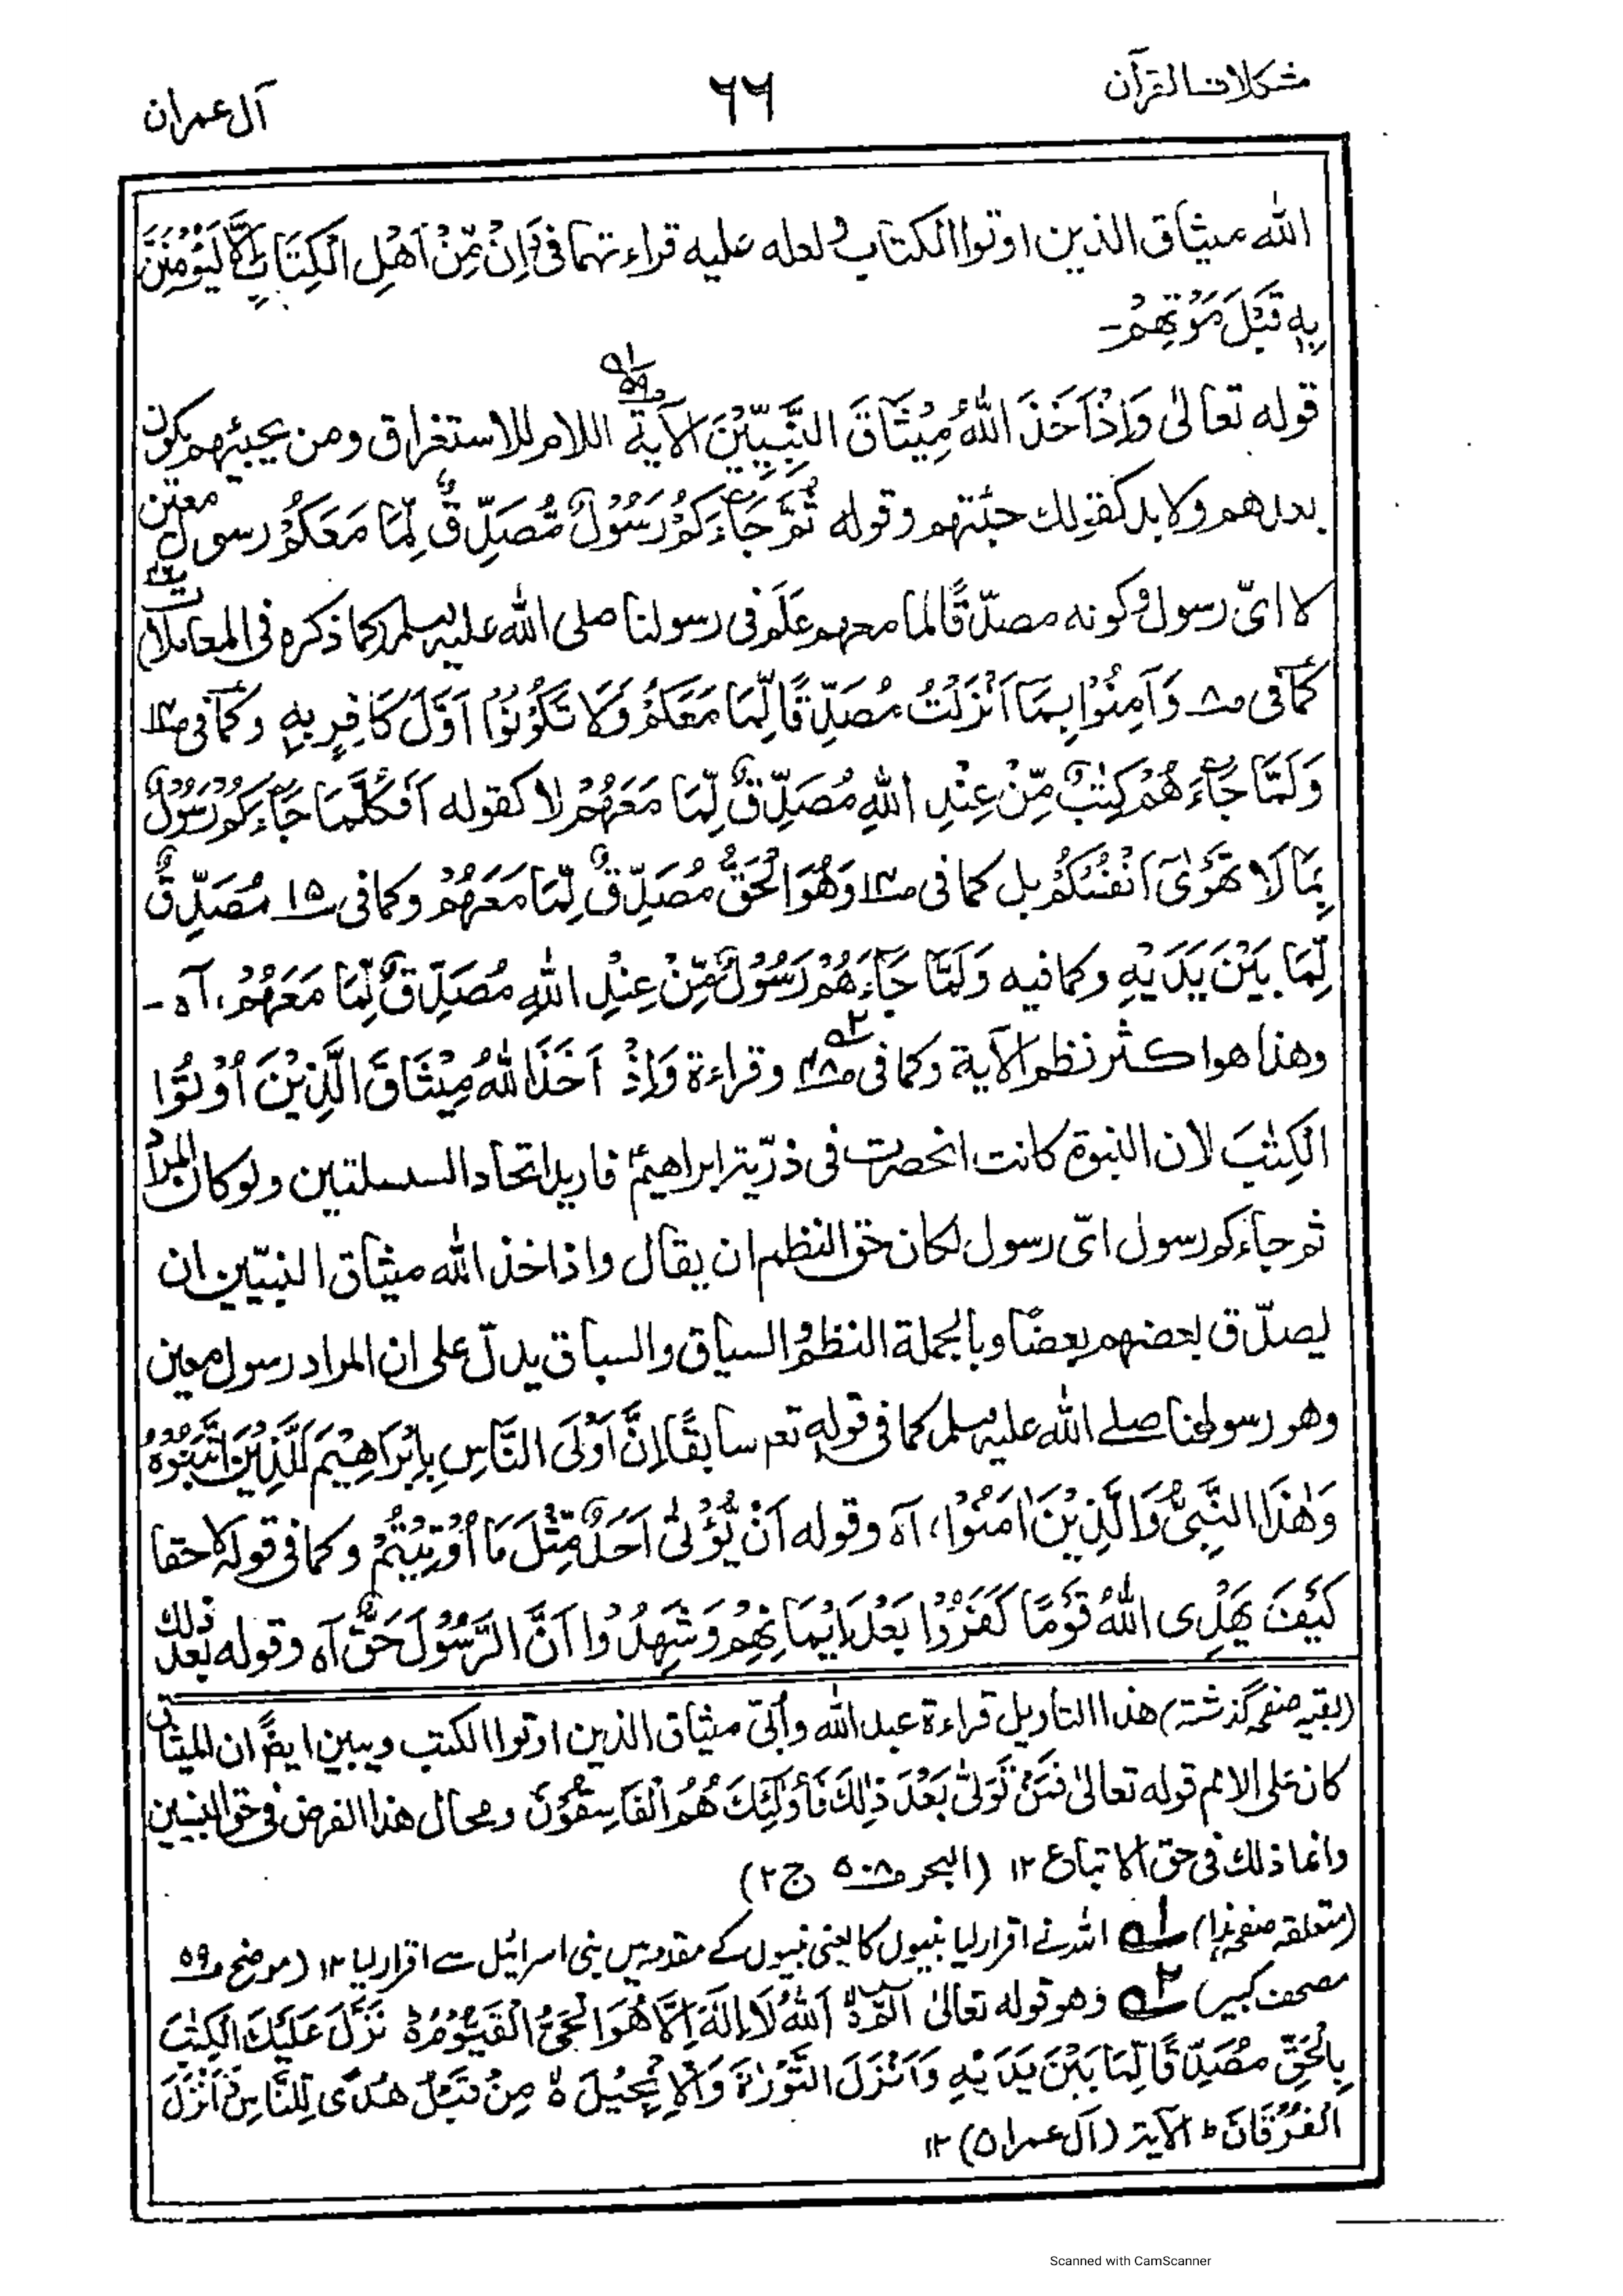 مشكلات القرآن
٦٦
آل عمران
الله ميثاق الذين اوتوا الكتاب ولعله عليه قراءتهما في وَاِنْ مِّنْ اَهْلِ الْكِتَابِ اِلَّا لَيُؤْمِنُنَّ
بِهٖ قَبْلَ مَوْتِهِمْ۔
قوله تعالىٰ وَاِذْ اَخَذَ اللهُ مِيْثَاقَ النَّبِيِّيْنَ الآية اللام للاستغراق ومن يجيئهم يكون
بعدهم ولابد كقولك جئتهم وقوله ثُمَّ جَآءَكُمْ رَسُوْلٌ مُّصَدِّقٌ لِّمَا مَعَكُمْ رسول معين
لا اىّ رسول وكونه مصدّقًا لما معهم عَلَم فى رسولنا صلى الله عليه وسلم كما ذكره فى المعاملات
كما فى م٨ وَآمِنُوْا بِمَا اَنْزَلْتُ مُصَدِّقًا لِّمَا مَعَكُمْ وَلَا تَكُوْنُوْا اَوَّلَ كَافِرٍ بِهٖ وكما فى
وَلَمَّا جَآءَهُمْ كِتٰبٌ مِّنْ عِنْدِ اللهِ مُصَدِّقٌ لِّمَا مَعَهُمْ لا كقوله اَفَكُلَّمَا جَآءَكُمْ رَسُوْلٌ
بِمَا لَا تَهْوٰىٓ اَنْفُسُكُمْ بل كما فى م١٤ وَهُوَ الْحَقُّ مُصَدِّقٌ لِّمَا مَعَهُمْ وكما فى م١٥ مُصَدِّقٌ
لِّمَا بَيْنَ يَدَيْهِ وكما فيه وَلَمَّا جَآءَهُمْ رَسُوْلٌ مِّنْ عِنْدِ اللهِ مُصَدِّقٌ لِّمَا مَعَهُمْ، آه۔
وهذا هو اكثر نظم الآية وكما فى م٤٨ ٢ه وقراءة وَاِذْ اَخَذَ اللهُ مِيْثَاقَ الَّذِيْنَ اُوْتُوا
الْكِتٰبَ لان النبوة كانت انحصرت فى ذرّية ابراهيمؑ فاريد اتحاد السلسلتين ولو كان المراد
ثم جاءكم رسول اىّ رسول لكان حق النظم ان يقال واذ اخذ الله ميثاق النبيّين ان
ليصدّق بعضهم بعضًا وبالجملة النظم والسياق والسباق يدلّ على ان المراد رسول معين
وهو رسولنا صلے الله عليه وسلم كما فى قوله تعم سابقًا اِنَّ اَوْلَى النَّاسِ بِاِبْرَاهِيْمَ لَلَّذِيْنَ اتَّبَعُوْهُ
وَهٰذَا النَّبِىُّ وَالَّذِيْنَ اٰمَنُوْا، آه وقوله اَنْ يُّؤْتٰى اَحَدٌ مِّثْلَ مَا اُوْتِيْتُمْ وكما فى قوله لاحقا
كَيْفَ يَهْدِى اللهُ قَوْمًا كَفَرُوْا بَعْدَ اِيْمَانِهِمْ وَشَهِدُوْا اَنَّ الرَّسُوْلَ حَقٌّ آه وقوله بعد ذلك
(بقيه صفحه گذشته) هذا التاويل قراءة عبد الله وأُبىّ ميثاق الذين اوتوا الكتب ويبين ايضًا ان الميثاق
كان على الامم قوله تعالىٰ فَمَنْ تَوَلّٰى بَعْدَ ذٰلِكَ فَأُولٰٓئِكَ هُمُ الْفَاسِقُوْنَ ومحال هذا الفرض فى حق النبيين
وانما ذلك فى حق الاتباع ١٢ (البحر م٥٠٨ ج٢)
(متعلقه صفحه هذا) ١ه اللہ نے اقرار لیا نبیوں کا یعنی نبیوں کے مقدمہ میں بنی اسرائیل سے اقرار لیا ١٢ (موضح م٥٩
مصحف كبير) ٢ه وهو قوله تعالىٰ الٓمّٓ ۝ اَللهُ لَا اِلٰهَ اِلَّا هُوَ الْحَىُّ الْقَيُّوْمُ ۝ نَزَّلَ عَلَيْكَ الْكِتٰبَ
بِالْحَقِّ مُصَدِّقًا لِّمَا بَيْنَ يَدَيْهِ وَاَنْزَلَ التَّوْرٰةَ وَالْاِنْجِيْلَ ۝ مِنْ قَبْلُ هُدًى لِّلنَّاسِ وَاَنْزَلَ
الْفُرْقَانَ ط الآية (آل عمران) ١٢
Scanned with CamScanner